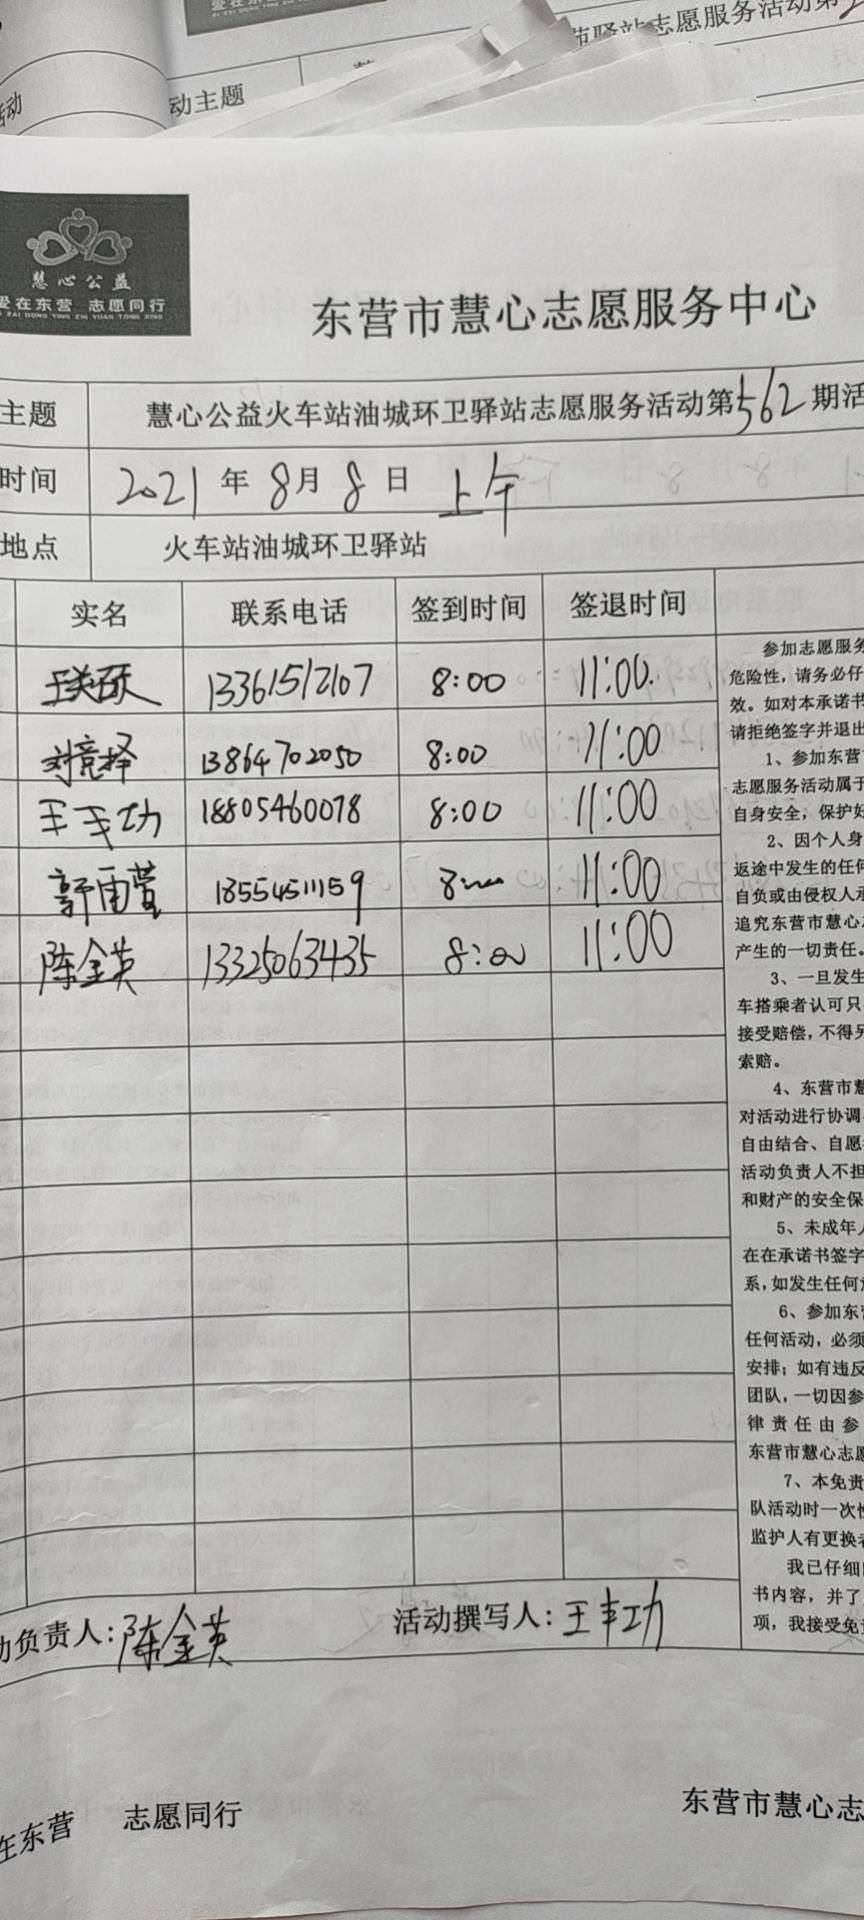 动主题
慧心公益
爱在东营 志愿同行
AI ZAI DONG YING ZHI YUAN TONG XING
东营市慧心志愿服务中心
主题 慧心公益火车站油城环卫驿站志愿服务活动第562期活
时间 2021年8月8日 上午
地点 火车站油城环卫驿站
实名 联系电话 签到时间 签退时间
13361512107 8:00 11:00
刘竞择 13864702050 8:00 11:00
王丰功 18805460078 8:00 11:00
郭雨萱 18554511159 8:00 11:00
陈金英 13325063435 8:00 11:00
参加志愿服务
危险性，请务必仔
效。如对本承诺书
请拒绝签字并退出
1、参加东营
志愿服务活动属于
自身安全，保护好
2、因个人身
返途中发生的任何
自负或由侵权人承
追究东营市慧心志
产生的一切责任。
3、一旦发生
车搭乘者认可只
接受赔偿，不得另
索赔。
4、东营市慧
对活动进行协调
自由结合、自愿
活动负责人不担
和财产的安全保
5、未成年人
在在承诺书签字
系，如发生任何意
6、参加东营
任何活动，必须
安排；如有违反
团队，一切因参
律责任由参
东营市慧心志愿
7、本免责
队活动时一次性
监护人有更换
我已仔细阅
书内容，并了
项，我接受免责
动负责人：陈金英 活动撰写人：王丰功
在东营 志愿同行
东营市慧心志